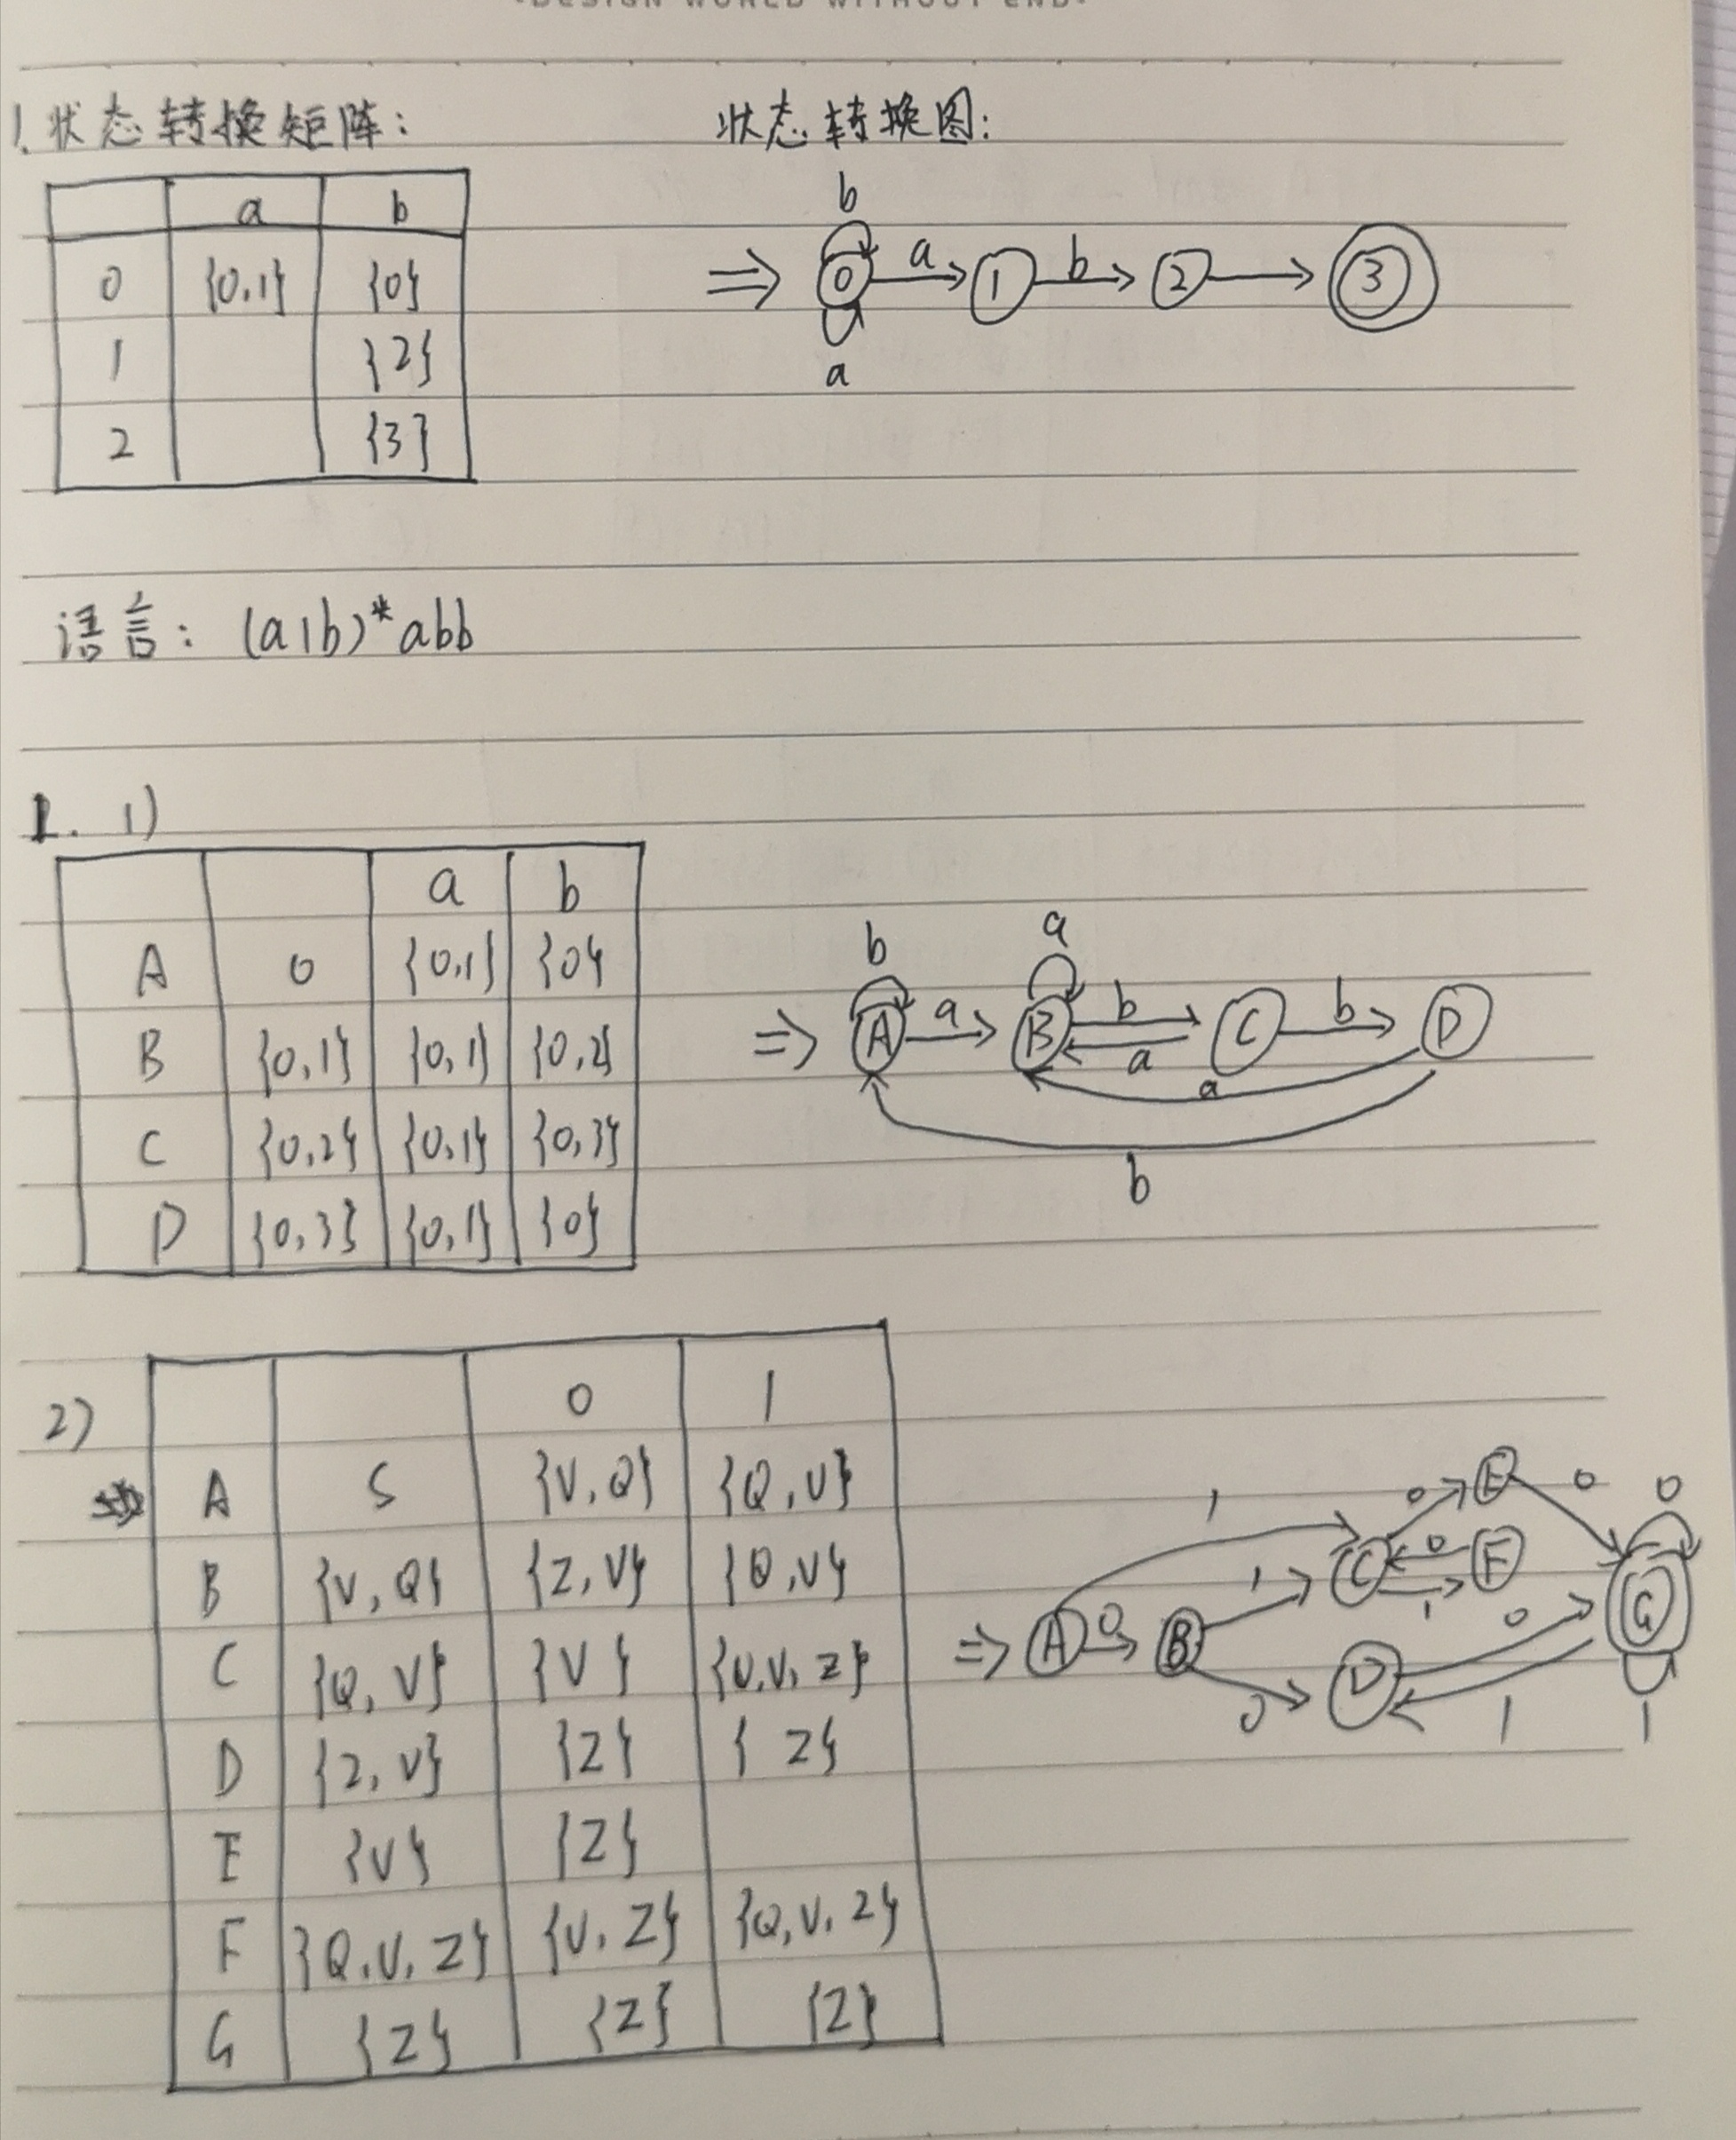 ·DESIGN WORLD WITHOUT END·
1.状态转换矩阵: 状态转换图:
a b
0 {0,1} {0}
1 {2}
2 {3}
b
⇒ 0 a 1 b 2 3
a
语言: (a|b)*abb
1. 1)
a b
A 0 {0,1} {0}
B {0,1} {0,1} {0,2}
C {0,2} {0,1} {0,3}
D {0,3} {0,1} {0}
b a
⇒ A a B b C b D
a
a
b
2)
0 1
A S {V,Q} {Q,U}
B {V,Q} {Z,V} {Q,U}
C {Q,U} {V} {Q,U,Z}
D {Z,V} {Z} {Z}
E {V} {Z}
F {Q,U,Z} {V,Z} {Q,U,Z}
G {Z} {Z} {Z}
1 0 E 0 0
C 0 F
1 1 0 G
⇒ A 0 B
0 D 1 1